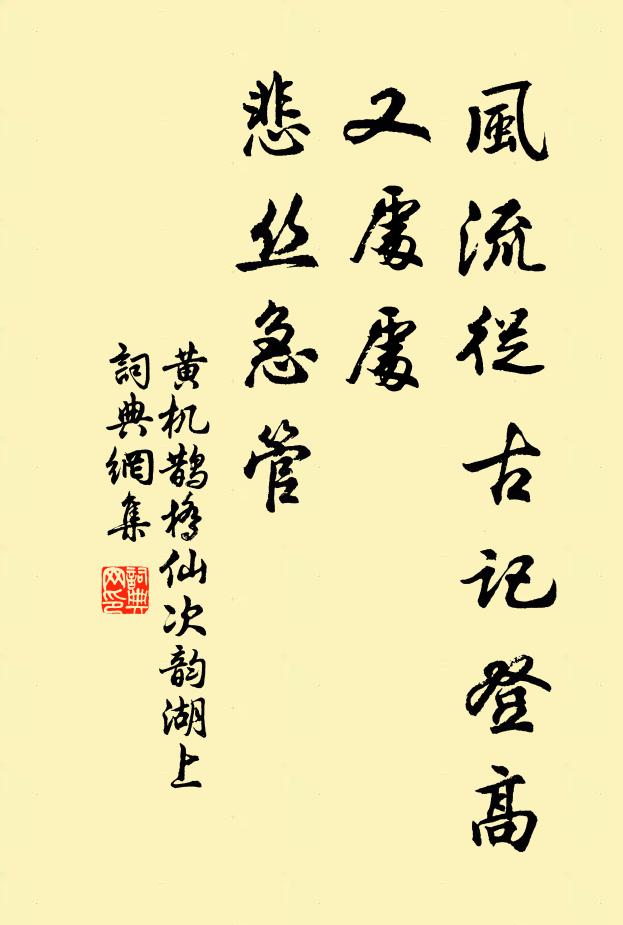 風流從古記登高
又處處
悲丝急管
黄机鹊橋仙次韵湖上
詞典網集
詞典网印